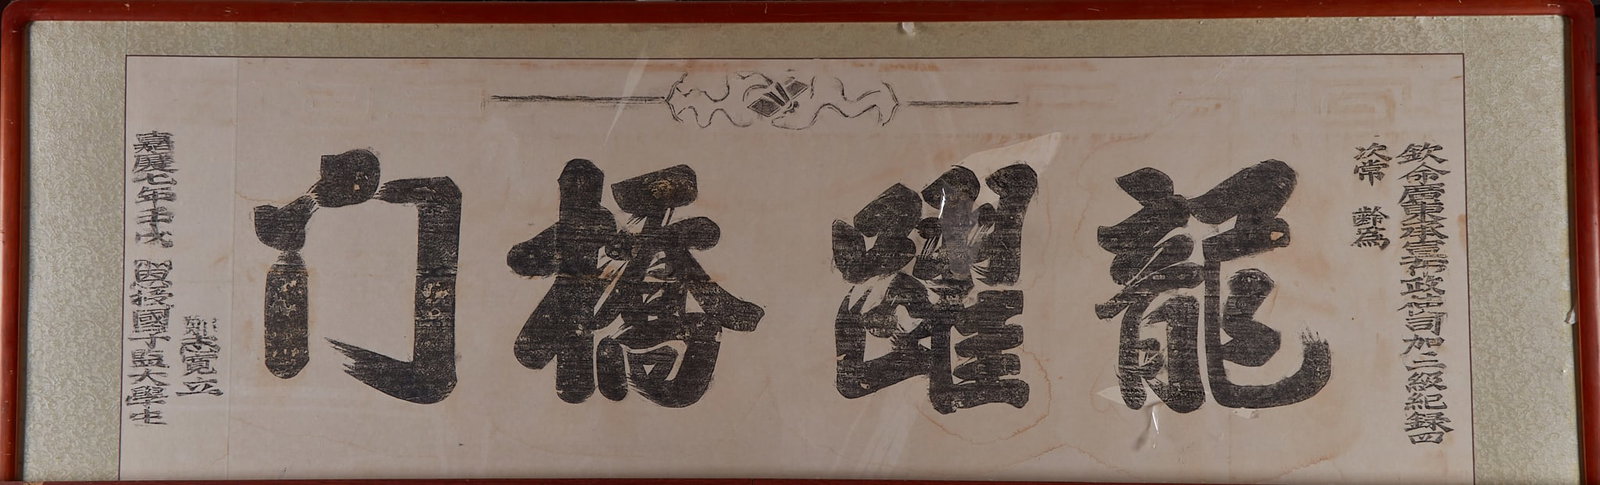 欽命廣東承宣布政使司加二級紀錄四
次常 齡為
龍躍橋门
嘉慶七年壬戌 欽授國子監大學生
寬立